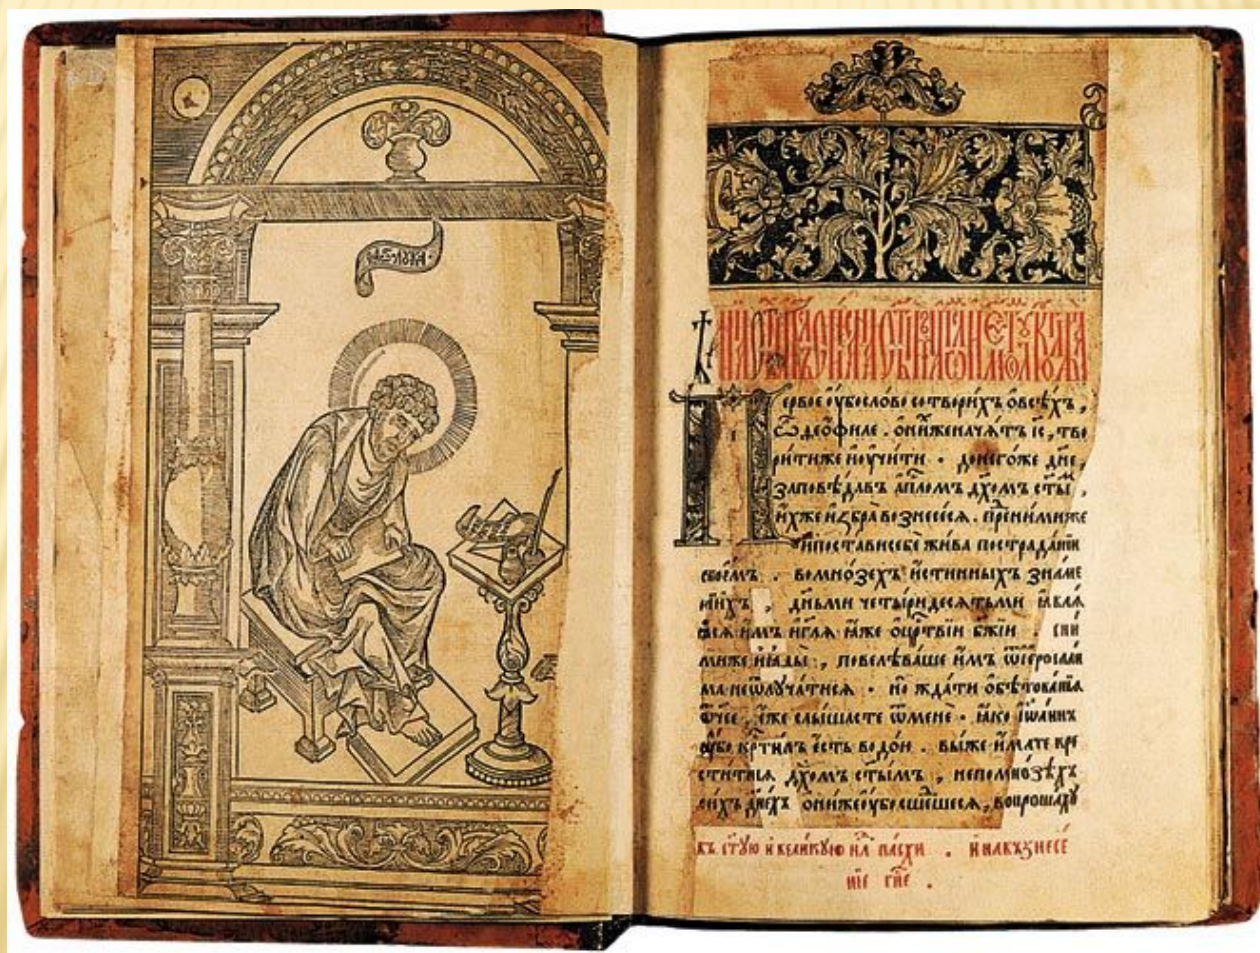 лꙋка
Пе́рвое ᲂу҆́бо сло́во сотвори́хъ ѡ҆ всѣ́хъ,
ѽ деѻ҆́филе. ѻ҆ ни́хже нача́тъ і҆с, тво
ри́ти же и҆ ᲂу҆чи́ти. до него́же дн҃е,
заповѣ́давъ а҆пⷭ҇ломъ дх҃омъ ст҃ыⷨ,
и҆́хже и҆збра̀ вознесе́сѧ. пред ни́миже
и҆ поста́ви себѐ жи́ва по страда́нїи
свое́мъ. во мно́зехъ и҆́стинныхъ зна́ме
нїихъ, дн҃ьми четы́ридесѧтьми ꙗ҆влѧ́
ѧсѧ и҆̀мъ и҆ гл҃ѧ ꙗ҆́же ѡ҆ црⷭ҇твїи бж҃їи. с ни́
миже и҆ ꙗ҆ды̀, повелѣва́ше и҆̀мъ ѿ і҆еросали
ма не ѿлꙋча́тисѧ. но жда́ти ѻ҆бѣтова́нїѧ
ѿчее, е҆́же слы́шасте ѿ менѐ. ꙗ҆́ко і҆ѡа́ннъ
ᲂу҆́бо крⷭ҇ти́лъ є҆́сть водо́ю. вы́ же и҆́мате кре
сти́тисѧ дх҃омъ ст҃ы́мъ, не по мно́зѣхъ
си́хъ дн҃ехъ. ѻ҆ни́же ᲂу҆́бо сше́дшесѧ, вопроша́хꙋ
въ ст҃ꙋю и҆ вели́кꙋю нлⷧ҇ю па́схи. и҆ на възнесе́
нїе гн҃е.